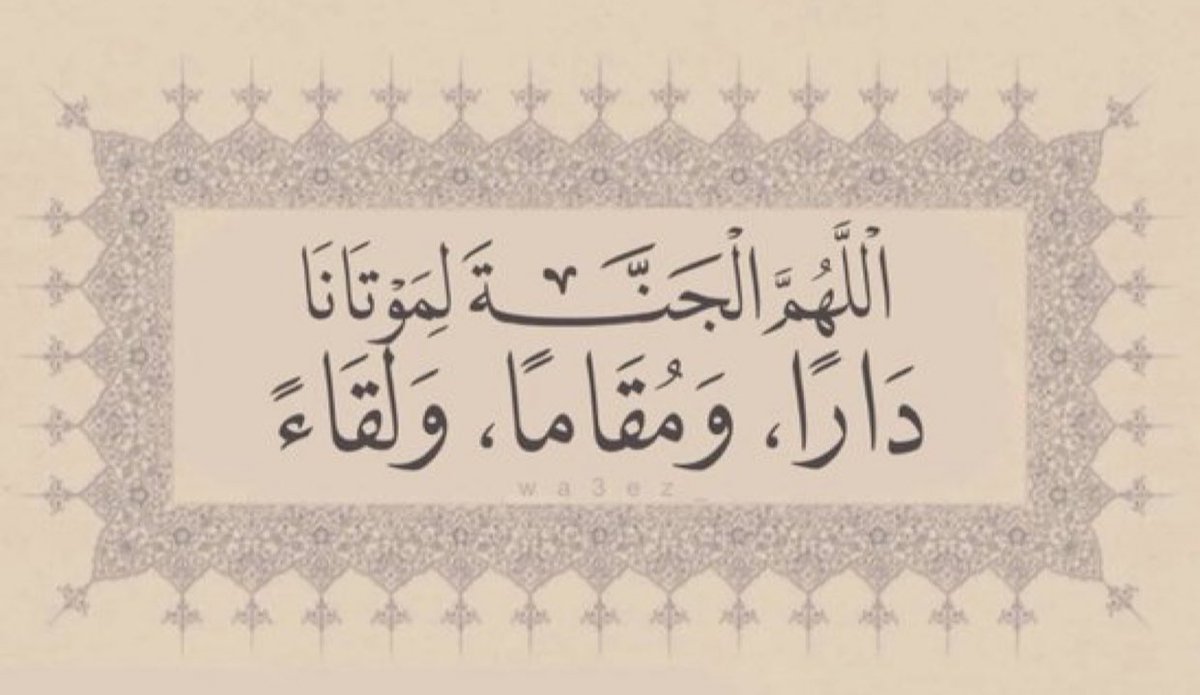 اْللَّهُمَّ الْجَنَّـــةَ لِمَوْتَانَا
دَارًا، وَمُقَامًا، وَلَقَاءً
wa3ez_